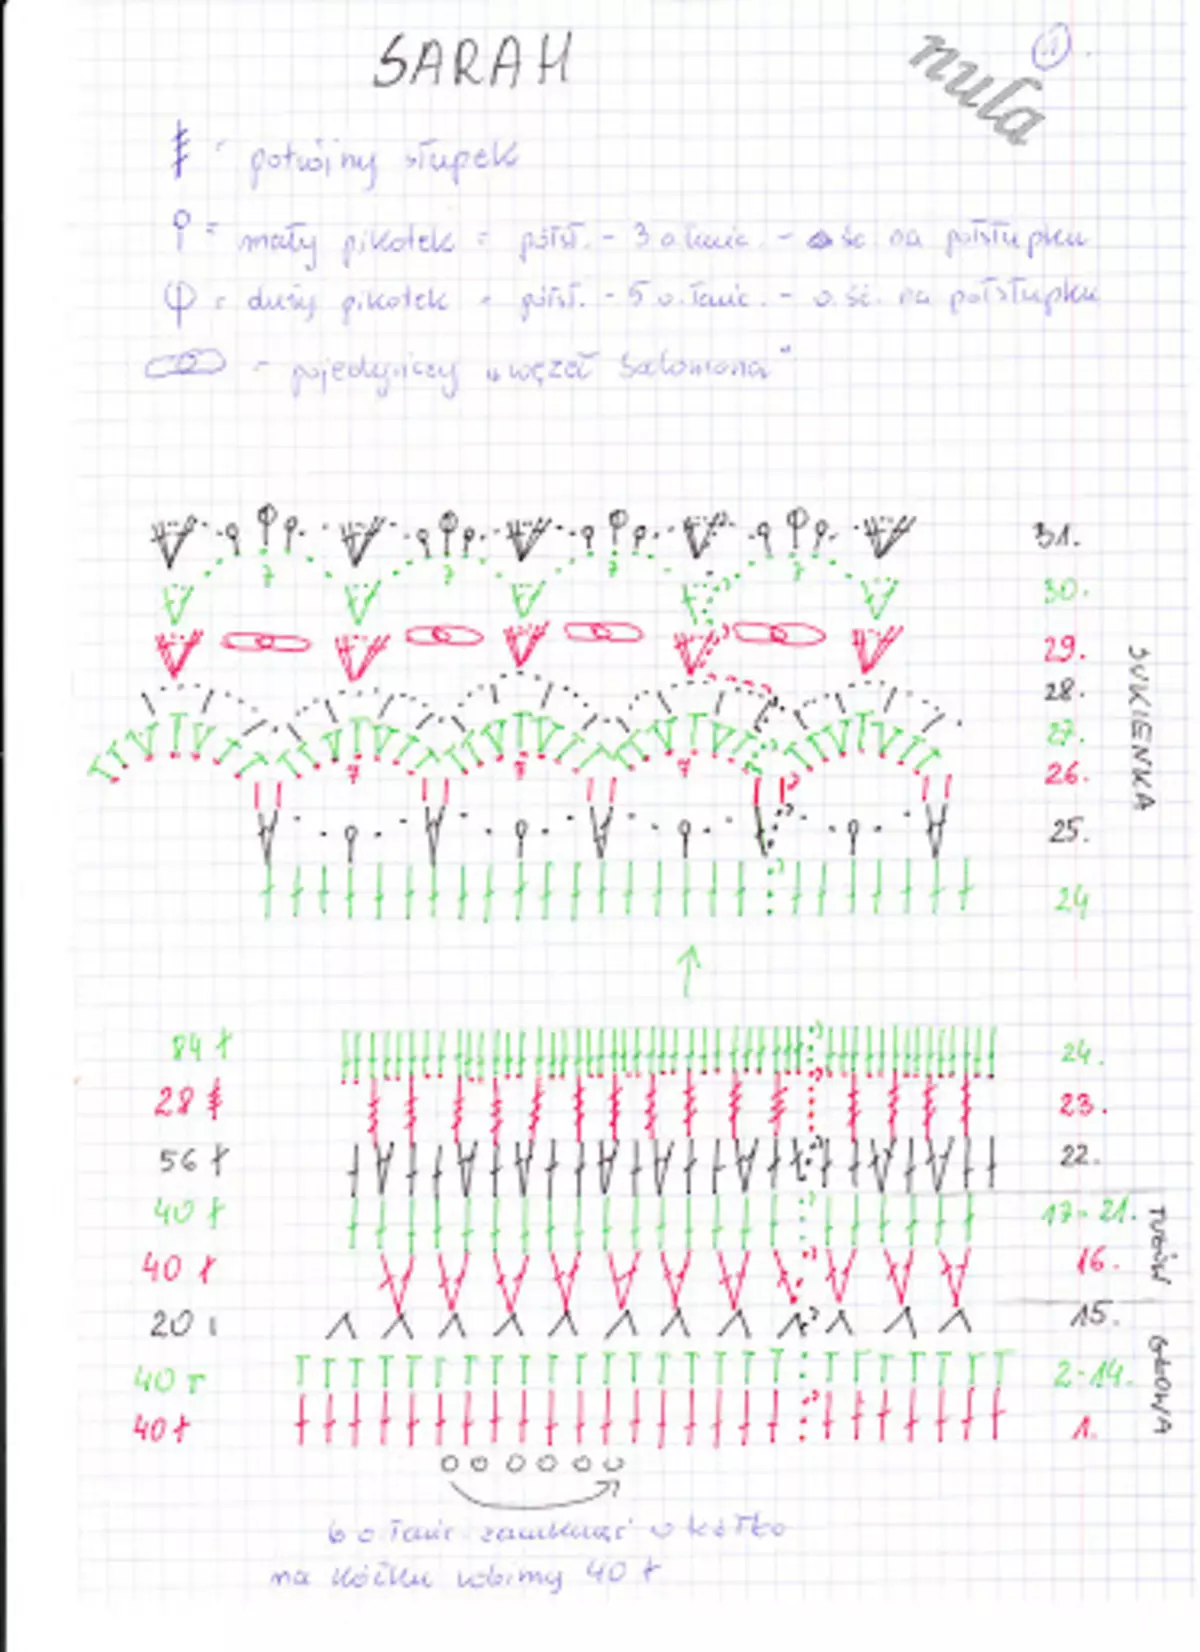 SARAH
nula
1.
= potrójny słupek
= mały pikotek = półsł. - 3 o. łańc. - o. śc. na półsłupku
= duży pikotek = półsł. - 5 o. łańc. - o. śc. na półsłupku
= pojedynczy "węzeł Salomona"
31.
7 7 7 7
30.
29.
28.
27.
7 7 7
26.
25.
24
SUKIENKA
84 24.
28 23.
56 22.
40 17-21.
40 16.
TUŁÓW
20 15.
40 2-14.
40 1.
GŁOWA
6 o łańc. zamknąć w kółko
na kółku robimy 40